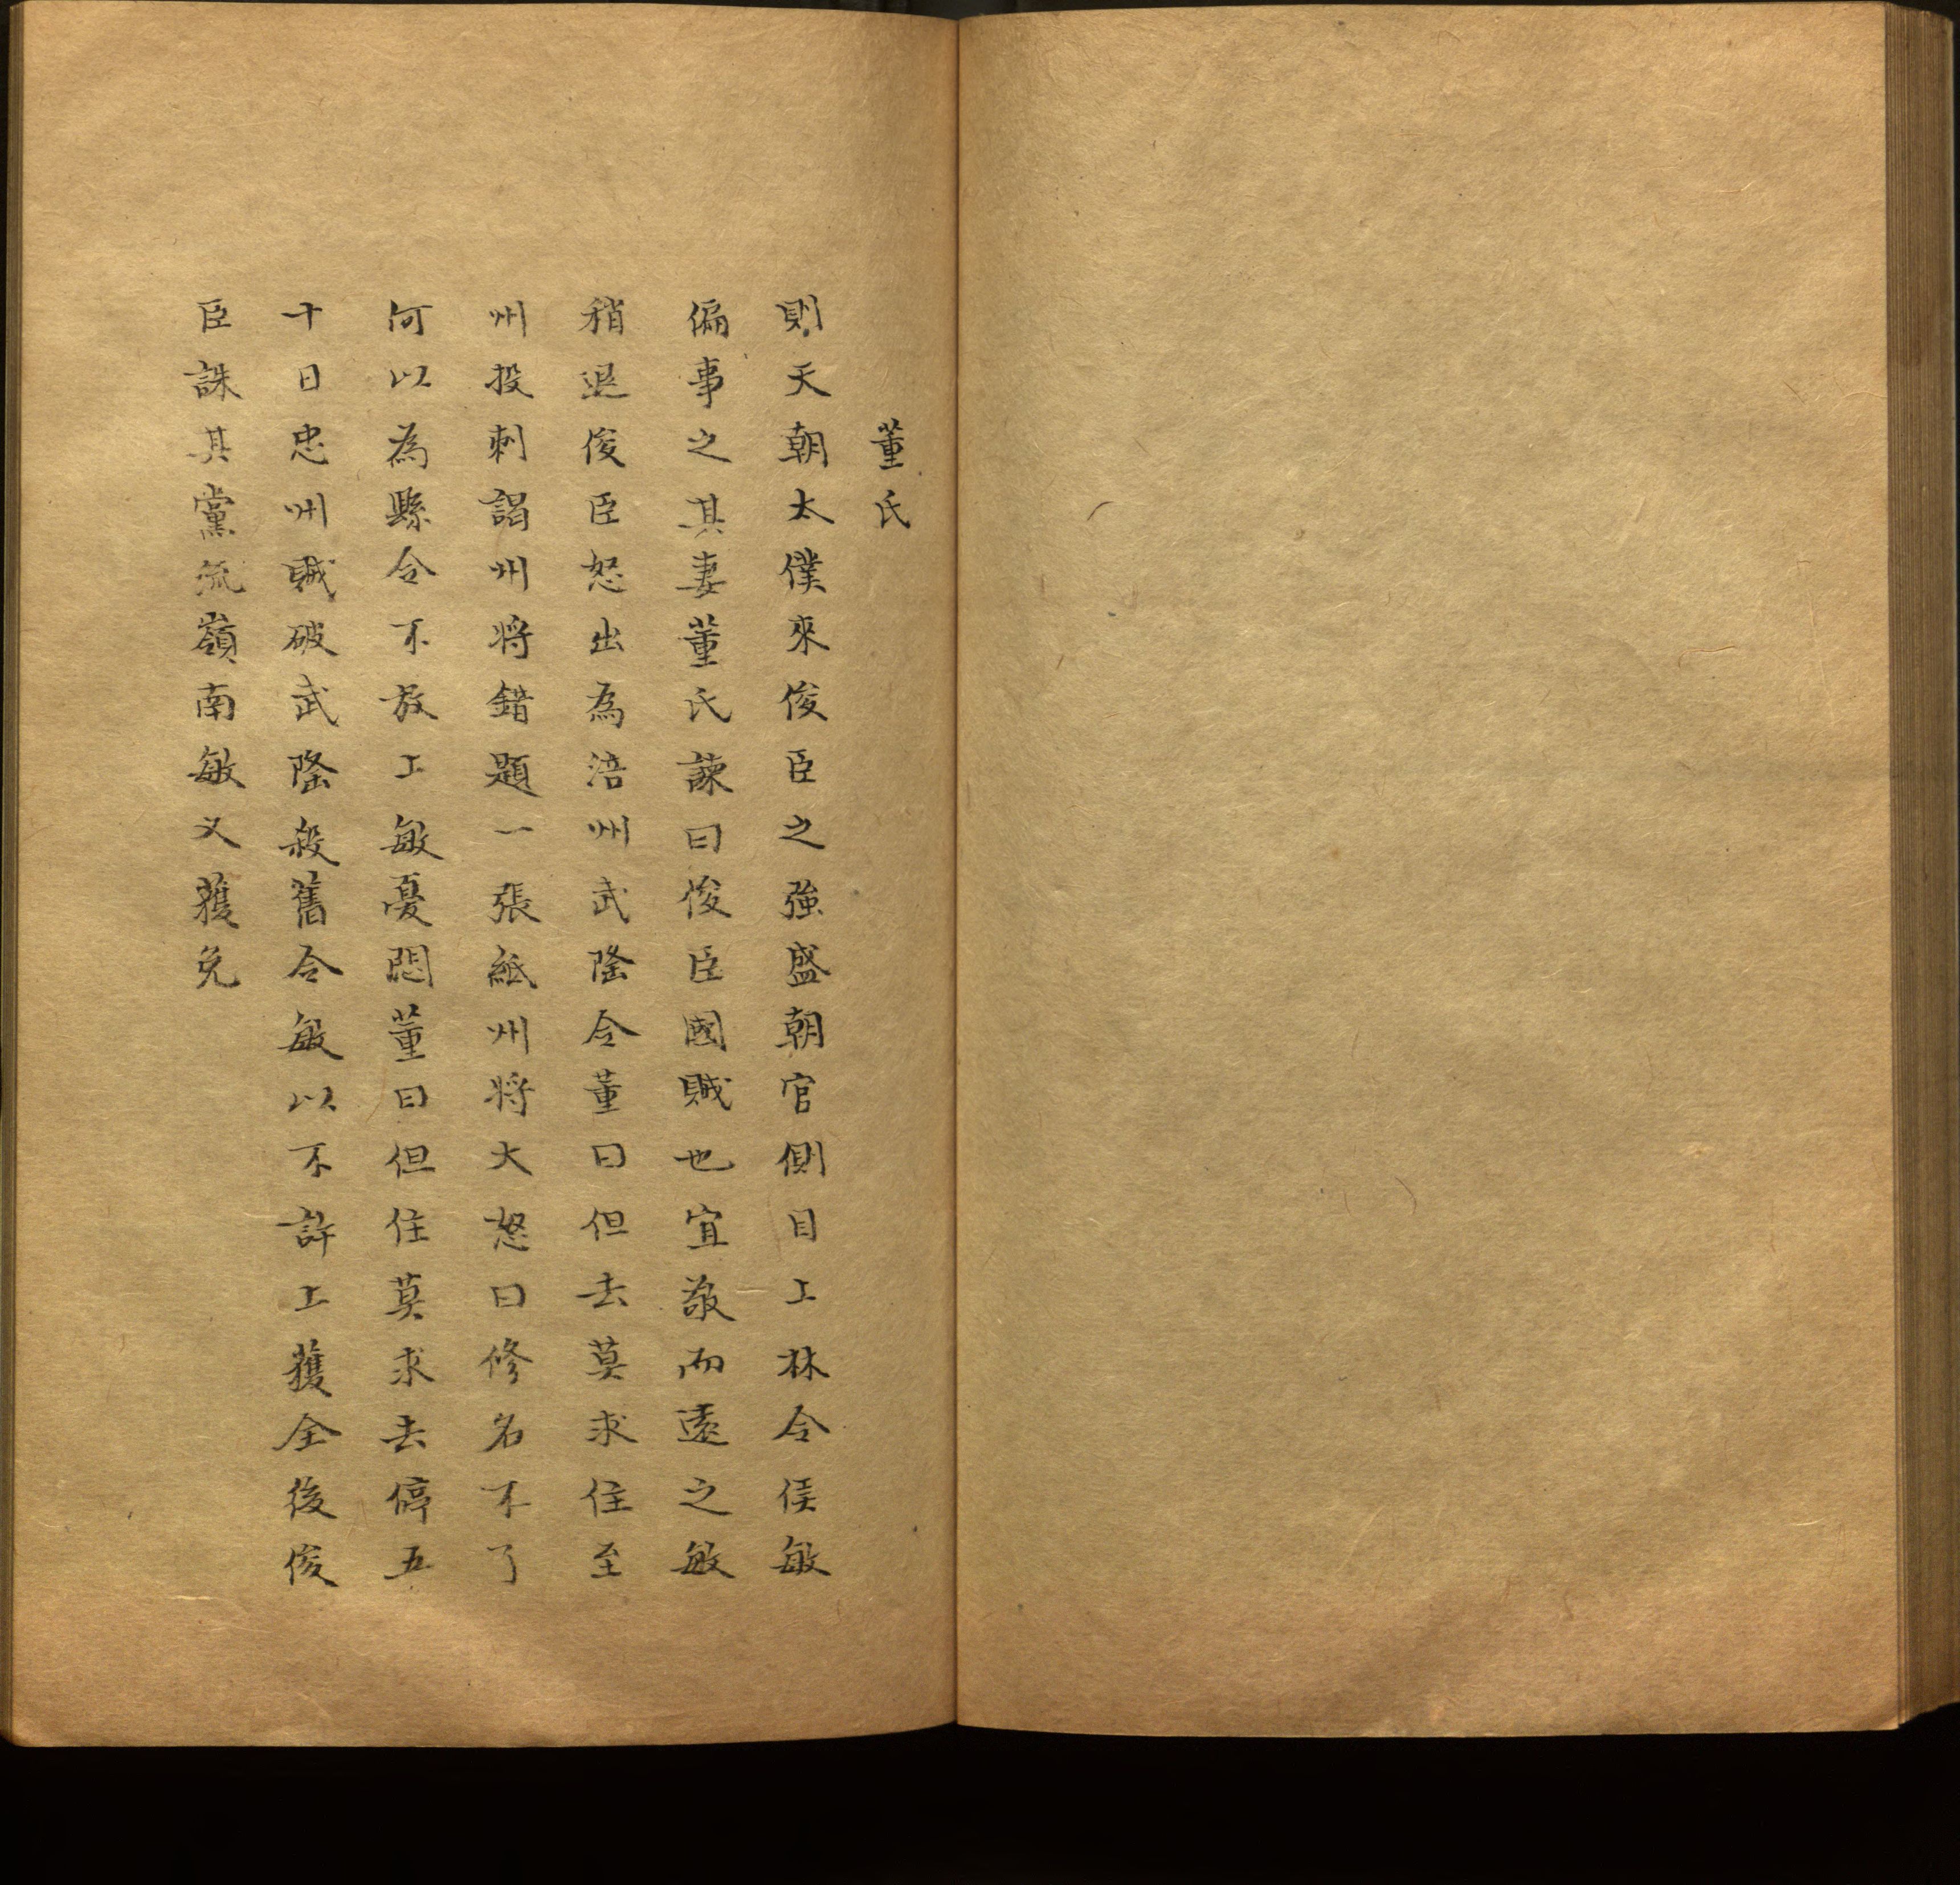 董氏
則天朝太僕來俊臣之強盛朝官側目上林令侯敏
偏事之其妻董氏諫曰俊臣國賊也宜敬而遠之敏
稍退俊臣怒出為涪州武隆令董曰但去莫求住至
州投刺謁州將錯題一張紙州將大怒曰修名不了
何以為縣令不放上敏憂悶董曰但住莫求去停五
十日忠州賊破武隆殺舊令敏以不許上獲全後俊
臣誅其黨流嶺南敏又獲免